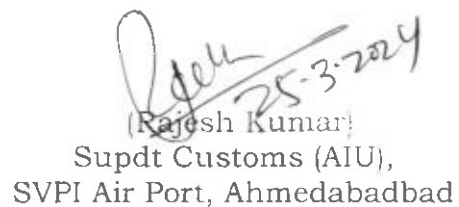 25-3-2024
(Rajesh Kumar)
Supdt Customs (AIU),
SVPI Air Port, Ahmedabadbad